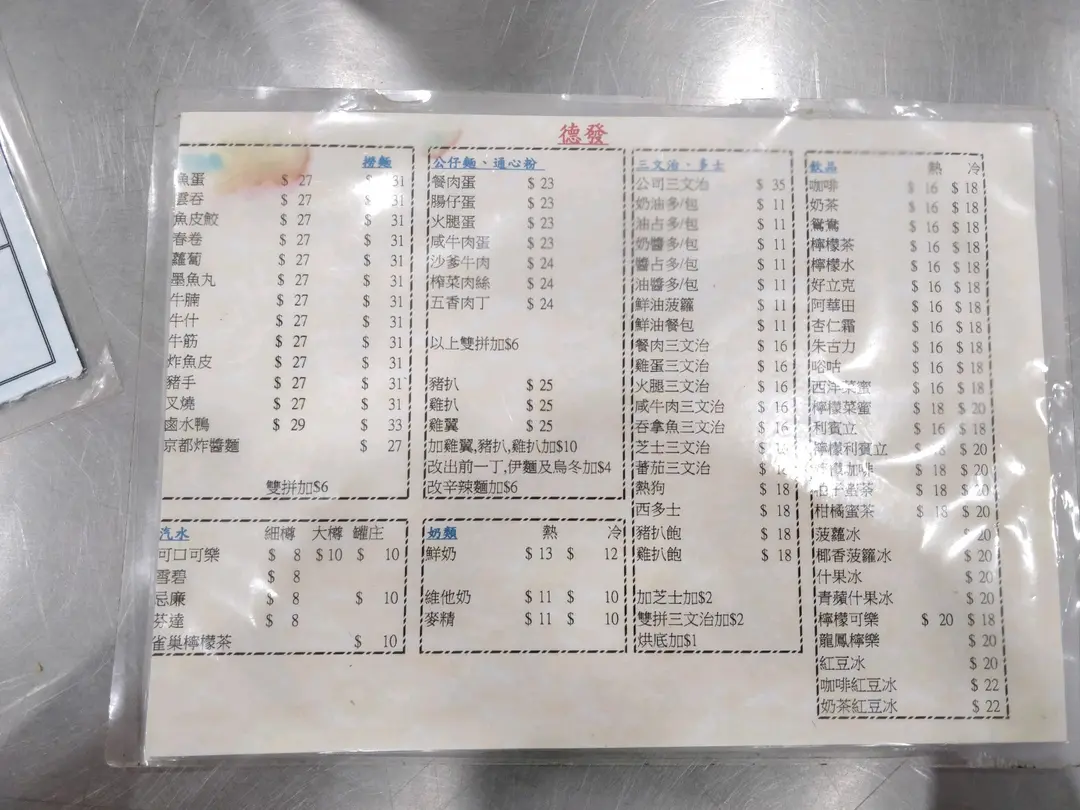 德發
撈麵
魚蛋 $ 27 $ 31
雲吞 $ 27 $ 31
魚皮餃 $ 27 $ 31
春卷 $ 27 $ 31
蘿蔔 $ 27 $ 31
墨魚丸 $ 27 $ 31
牛腩 $ 27 $ 31
牛什 $ 27 $ 31
牛筋 $ 27 $ 31
炸魚皮 $ 27 $ 31
豬手 $ 27 $ 31
叉燒 $ 27 $ 31
鹵水鴨 $ 29 $ 33
京都炸醬麵 $ 27
雙拼加$6
公仔麵、通心粉
餐肉蛋 $ 23
腸仔蛋 $ 23
火腿蛋 $ 23
咸牛肉蛋 $ 23
沙爹牛肉 $ 24
榨菜肉絲 $ 24
五香肉丁 $ 24
以上雙拼加$6
豬扒 $ 25
雞扒 $ 25
雞翼 $ 25
加雞翼,豬扒,雞扒加$10
改出前一丁,伊麵及烏冬加$4
改辛辣麵加$6
三文治、多士
公司三文治 $ 35
奶油多/包 $ 11
油占多/包 $ 11
奶醬多/包 $ 11
醬占多/包 $ 11
油醬多/包 $ 11
鮮油菠蘿 $ 11
鮮油餐包 $ 11
餐肉三文治 $ 16
雞蛋三文治 $ 16
火腿三文治 $ 16
咸牛肉三文治 $ 16
吞拿魚三文治 $ 16
芝士三文治 $
蕃茄三文治 $
熱狗 $ 18
西多士 $ 18
豬扒飽 $ 18
雞扒飽 $ 18
加芝士加$2
雙拼三文治加$2
烘底加$1
飲品 熱 冷
咖啡 $ 16 $ 18
奶茶 $ 16 $ 18
鴛鴦 $ 16 $ 18
檸檬茶 $ 16 $ 18
檸檬水 $ 16 $ 18
好立克 $ 16 $ 18
阿華田 $ 16 $ 18
杏仁霜 $ 16 $ 18
朱古力 $ 16 $ 18
唂咕 $ 16 $ 18
西洋菜蜜 $ 16 $ 18
檸檬菜蜜 $ 18 $ 20
利賓立 $ 16 $ 18
檸檬利賓立 $ 18 $ 20
檸檬咖啡 $ 18 $ 20
柚子蜜茶 $ 18 $ 20
柑橘蜜茶 $ 18 $ 20
菠蘿冰 $ 20
椰香菠蘿冰 $ 20
什果冰 $ 20
青蘋什果冰 $ 20
檸檬可樂 $ 20 $ 18
龍鳳檸樂 $ 20
紅豆冰 $ 20
咖啡紅豆冰 $ 22
奶茶紅豆冰 $ 22
汽水 細樽 大樽 罐庄
可口可樂 $ 8 $10 $ 10
雪碧 $ 8
忌廉 $ 8 $ 10
芬達 $ 8
雀巢檸檬茶 $ 10
奶類 熱 冷
鮮奶 $ 13 $ 12
維他奶 $ 11 $ 10
麥精 $ 11 $ 10